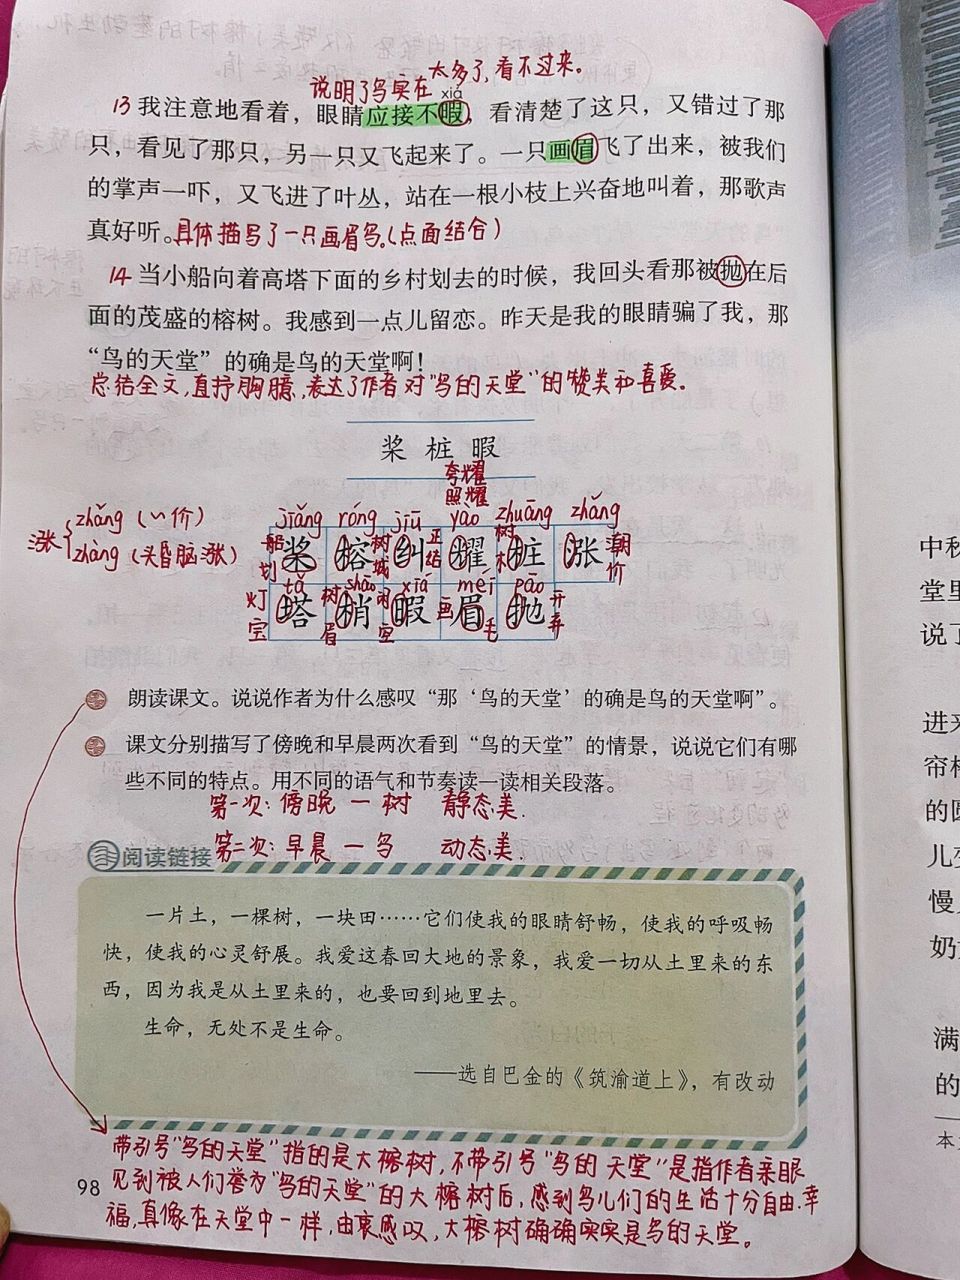 说明了鸟实在太多了，看不过来。
xiá
13 我注意地看着，眼睛应接不暇，看清楚了这只，又错过了那
只，看见了那只，另一只又飞起来了。一只画眉飞了出来，被我们
的掌声一吓，又飞进了叶丛，站在一根小枝上兴奋地叫着，那歌声
真好听。具体描写了一只画眉鸟。(点面结合)
14 当小船向着高塔下面的乡村划去的时候，我回头看那被抛在后
面的茂盛的榕树。我感到一点儿留恋。昨天是我的眼睛骗了我，那
“鸟的天堂”的确是鸟的天堂啊！
总结全文，直抒胸臆，表达了作者对“鸟的天堂”的赞美和喜爱。
桨 桩 暇
夸耀
照耀
涨 zhǎng (~价)
zhàng (头昏脑涨)
jiǎng róng jiū yào zhuāng zhǎng
船 桨 榕 树 纠 正 耀 树 桩 涨 潮
划 城 结 木 价
tǎ shāo xiá méi pāo
灯 塔 树 梢 闲 暇 画 眉 抛 开
宝 眉 空 毛 弃
朗读课文。说说作者为什么感叹“那‘鸟的天堂’的确是鸟的天堂啊”。
课文分别描写了傍晚和早晨两次看到“鸟的天堂”的情景，说说它们有哪
些不同的特点。用不同的语气和节奏读一读相关段落。
第一次：傍晚 — 树 静态美.
第二次：早晨 — 鸟 动态美.
阅读链接
一片土，一棵树，一块田……它们使我的眼睛舒畅，使我的呼吸畅
快，使我的心灵舒展。我爱这春回大地的景象，我爱一切从土里来的东
西，因为我是从土里来的，也要回到地里去。
生命，无处不是生命。
——选自巴金的《筑渝道上》，有改动
带引号“鸟的天堂”指的是大榕树，不带引号“鸟的天堂”是指作者亲眼
见到被人们誉为“鸟的天堂”的大榕树后，感到鸟儿们的生活十分自由.幸
福，真像在天堂中一样，由衷感叹，大榕树确确实实是鸟的天堂。
98
中秋
堂里
说了
进来
帘栊
的圆
儿变
慢
奶
满
的
本